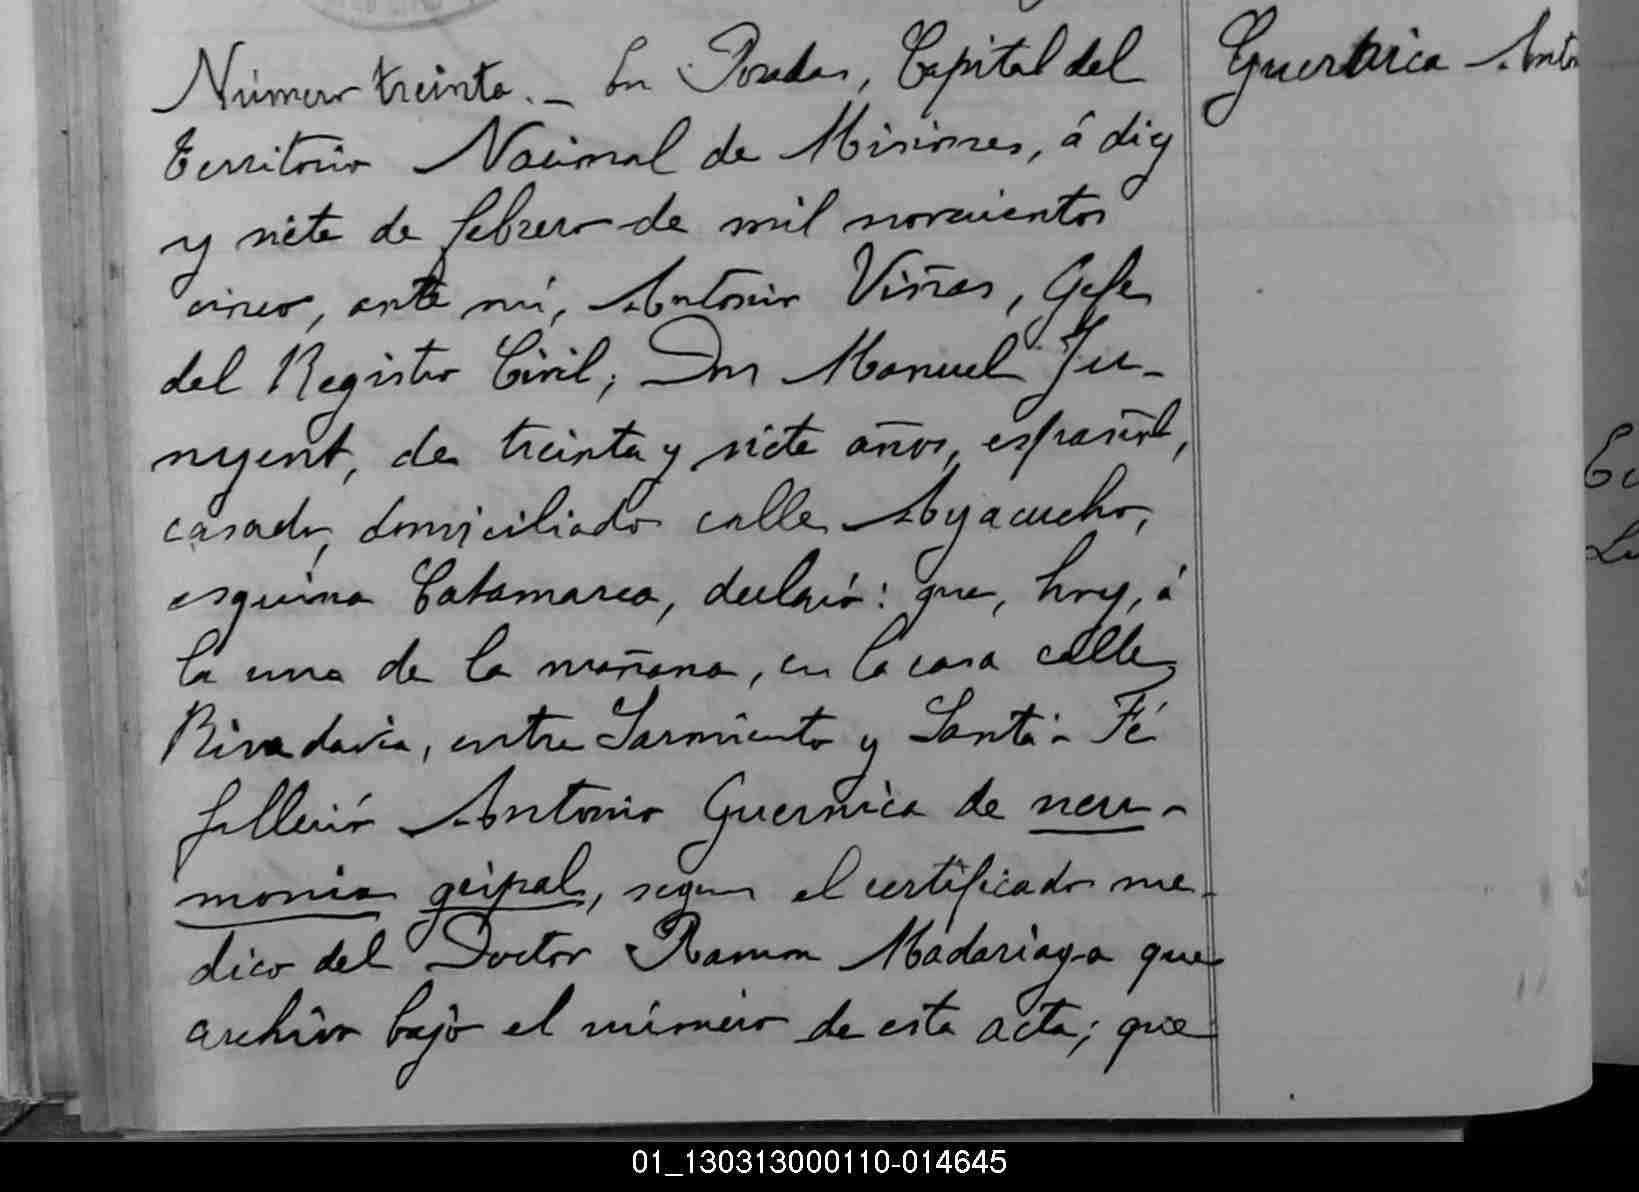 Número treinta._ En Posadas, Capital del
territorio Nacional de Misiones, á diez
y siete de febrero de mil novecientos
cinco, ante mí, Antonio Viñas, Gefe
del Registro Civil; Don Manuel Ju-
nyent, de treinta y siete años, español,
casado, domiciliado calle Ayacucho,
esquina Catamarca, declaró: que, hoy, á
la una de la mañana, en la casa calle
Rivadavia, entre Sarmiento y Santa-Fé
falleció Antonio Guernica de neu-
monia gripal, segun el certificado me-
dico del Doctor Ramon Madariaga que
archivo bajo el número de esta acta; que
Guernica Anto
01_130313000110-014645